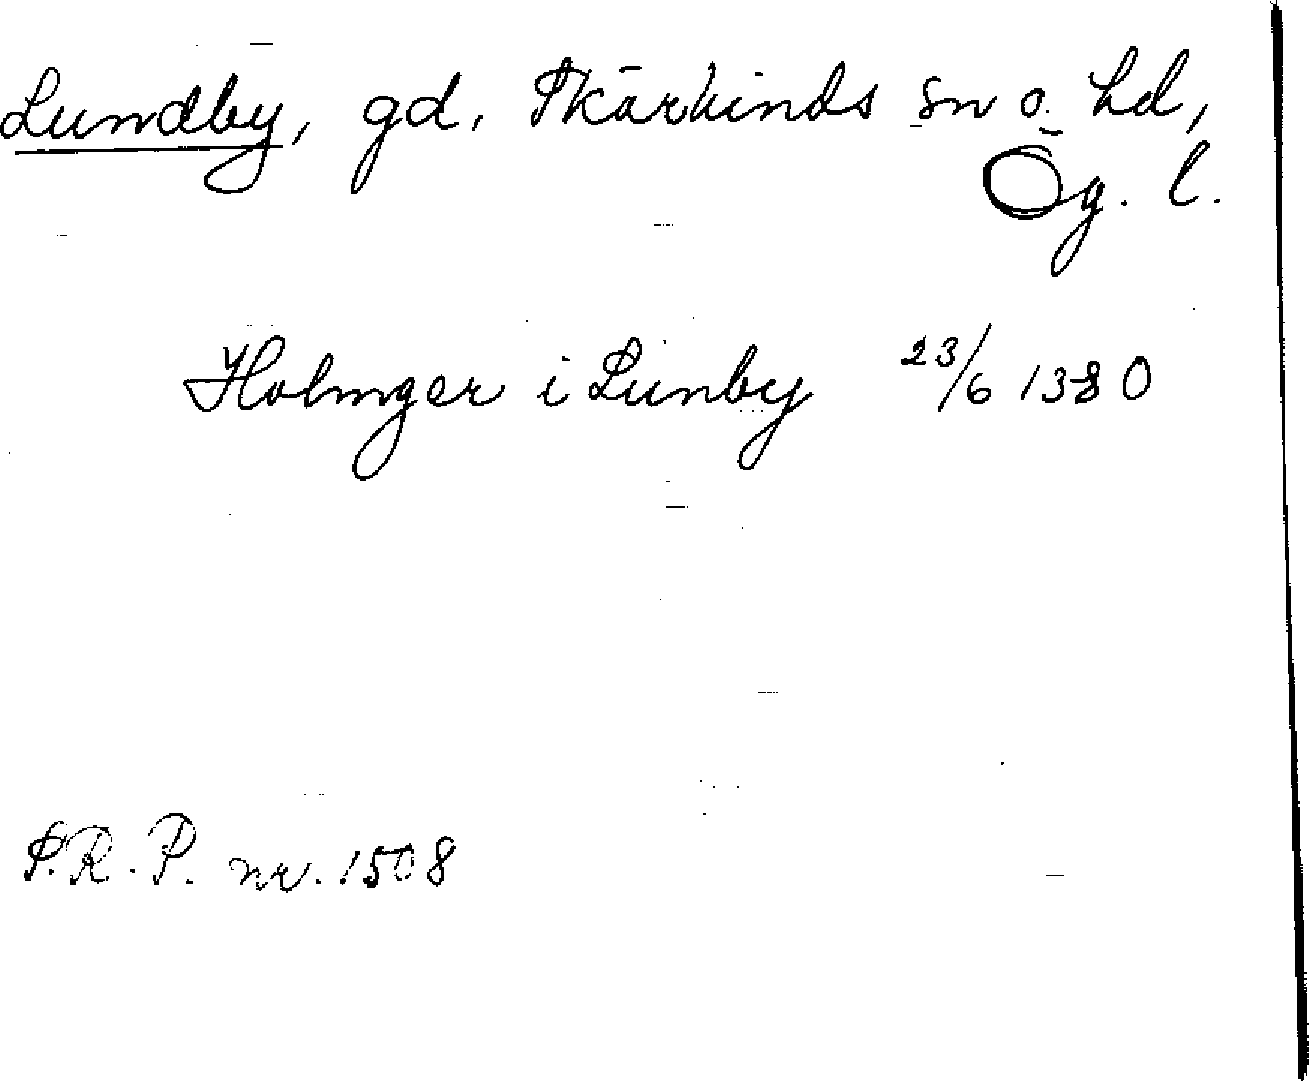 Lundby, gd, Skärkinds sn o. hd,
Ög. l.
Holmger i Lunby 23/6 1380
S.R.P. nr. 1508